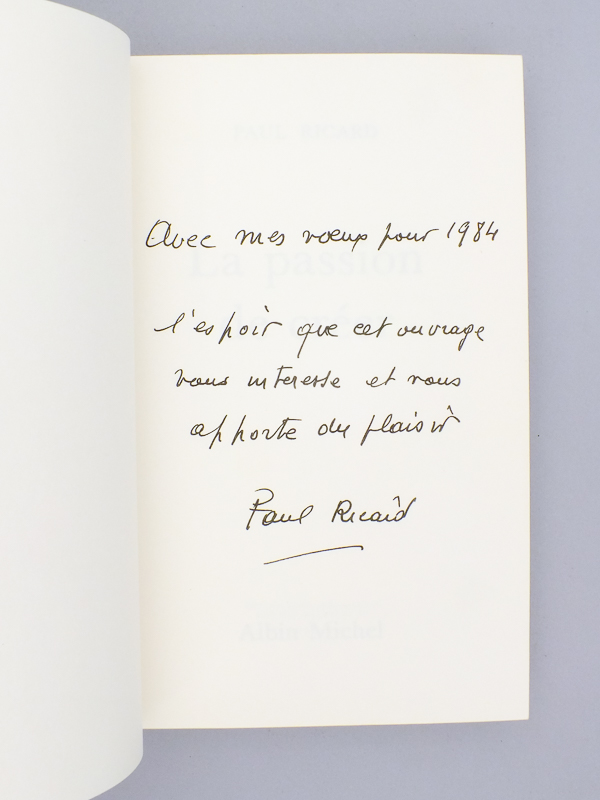 Avec mes vœux pour 1984
l'espoir que cet ouvrage
vous interesse et vous
apporte du plaisir
Paul Ricard
PAUL RICARD
La passion
de créer
Albin Michel